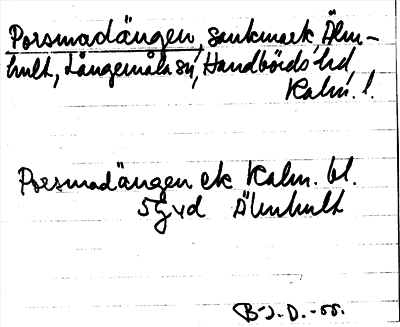 Porsmadängen, sankmark, Älm-
hult, Långemåla sn, Handbörds hd,
Kalm. l.
Porsmadängen ek Kalm. bl.
5g vd Älmhult
B-J. D. -55.